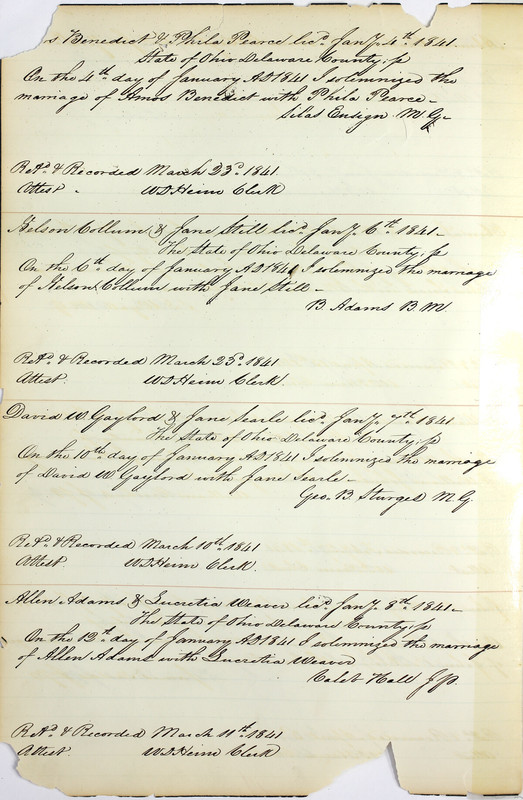 s Benedict & Phila Pearce licd. Jany. 4th. 1841.
State of Ohio Delaware County, ss
On the 4th day of January AD 1841 I solemnized the
marriage of Amos Benedict with Phila Pearce -
Silas Ensign M. G.
Retd. & Recorded March 23d. 1841
Attest - W. D. Heim Clerk
Nelson Collum & Jane Still licd. Jany. 6th. 1841 -
The State of Ohio Delaware County, ss
On the 6th day of January AD 1841 I solemnized the marriage
of Nelson Collum with Jane Still -
B. Adams B. M.
Retd. & Recorded March 23d. 1841
Attest. W. D. Heim Clerk.
David W. Gaylord & Jane Searle licd. Jany. 7th. 1841
The State of Ohio Delaware County, ss
On the 10th day of January AD 1841 I solemnized the marriage
of David W Gaylord with Jane Searle -
Geo. B. Sturges M. G.
Retd. & Recorded March 10th. 1841
Attest W. D. Heim Clerk.
Allen Adams & Lucretia Weaver licd. Jany. 8th. 1841 -
The State of Ohio Delaware County, ss
On the 13th day of January AD 1841 I solemnized the marriage
of Allen Adams with Lucretia Weaver
Caleb Hall J. P.
Retd. & Recorded March 11th. 1841
Attest. W. D. Heim Clerk